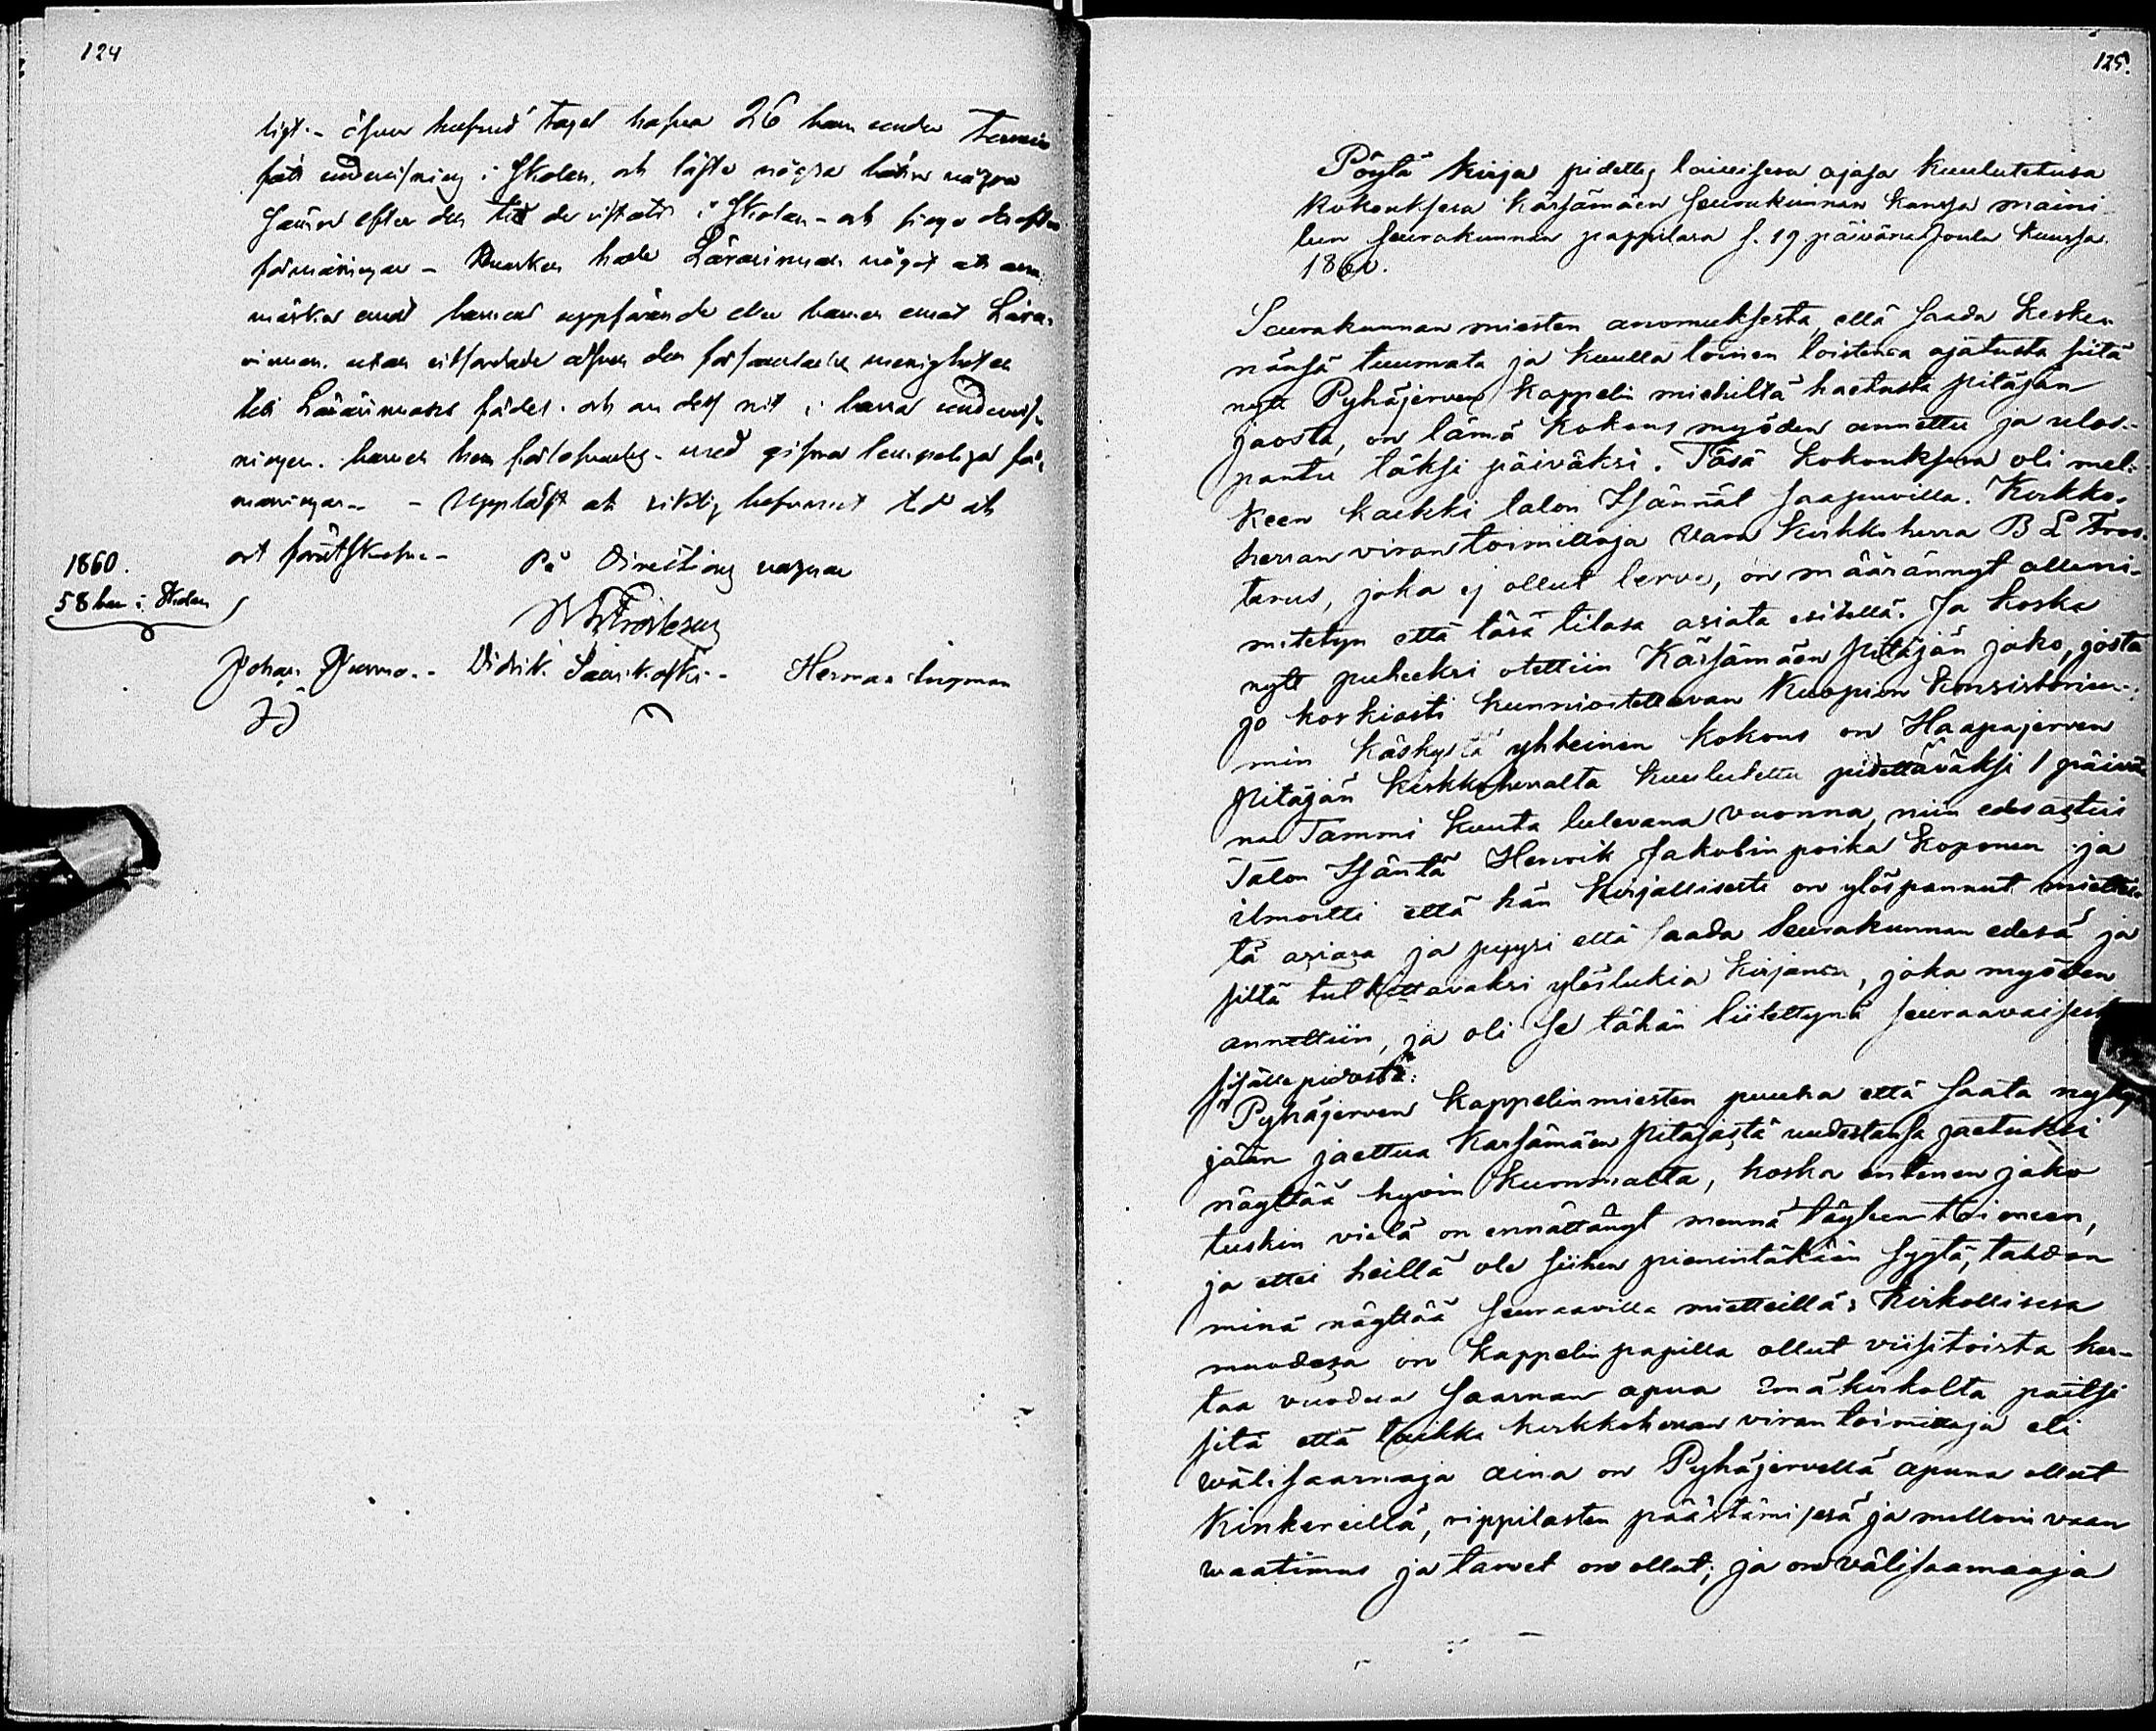 124
ligt. - öfver hufvud taget hafva 26 barn under Termin
fått undervisning i Skolan, och läste några bättre några
sämre efter den tid de vistats i Skolan - och fingo derefter
förmaningar - hade Lärarinnan något att an-
märka emot barnens uppförande eller barnen emot Lära-
rinnan, utan
till Lärarinnans
ningen. barnen
maningar. - Uppläst och riktigt befunnet tid och
ort förutskrefne -
På Direktions vägnar
1860.
58 barn i Skolan
Johan Didrik Saarikoski - Herman Ingman
125.
Pöytä Kirja pidetty laillisesa ajasa Kuulutetusa
Kokouksesa Kärsämäen seurakunnan kanssa maini-
tun seurakunnan pappilasa s. 19 päivänä Joulu kuussa
1860.
Seurakunnan miesten anomuksesta, että saada keske-
nänsä tuumata ja kuulla toinen toistensa ajatusta siitä
nytt Pyhäjerven Kappelin miehiltä haetusta pitäjän
jaosta, on tämä kokous myöden annettu ja ulos-
pantu täksi päiväksi. Täsä kokouksesa oli mel-
keen kaikki talon Isännät saapuvilla. Kirkko-
herran viran toimittaja Vara Kirkkoherra B L Fros-
terus, joka ej ollut terve, on määrännyt alleni-
mitetyn että täsä tilasa asiata esitellä. Ja koska
nytt puheeksi otettiin Kärsämäen Pitäjän jako, josta
jo korkiasti kunnioitettavan Kuopion Konsistoriu-
min käskystä yhteinen kokous on Haapajerven
Pitäjän Kirkkoherralta kuulutettu pidettäväksi 1 päivä
na Tammi kuuta tulevana vuonna, niin edesastui
Talon Isäntä Henrik Jakobin poika Koponen ja
ilmoitti että hän kirjallisesti on ylöspannut mietten-
tä asiasa ja pyysi että saada Seurakunnan edesä ja
siltä tutkittavaksi ylöslukia kirjansa, joka myöden
annettiin, ja oli se tähän liitettynä seuraavaisesta
sisälle pidosta:
"Pyhäjerven Kappelinmiesten puuha että saata nyky-
jään jaettua Kärsämäen Pitäjästä uudestansa jaetuksi
näyttää hyvin kummalta, koska entinen jako
tuskin vielä on ennättänyt mennä täyteen toimeen,
ja ettei heillä ole siihen pienintäkään syytä, tahdon
minä näyttää seuraavilla mietteillä: Kirkollisesa
muodosa on Kappelin papilla ollut viisitoista ker-
taa vuodesa saarnan apua Emäkirkolta paitsi
sitä että taikka kirkkoherran viran toimittaja eli
välisaarnaja aina on Pyhäjervellä apuna ollut
Kinkereillä, rippilasten päästämisesä ja milloin vaan
vaatimus ja tarvet on ollut; ja on välisaarnaaja